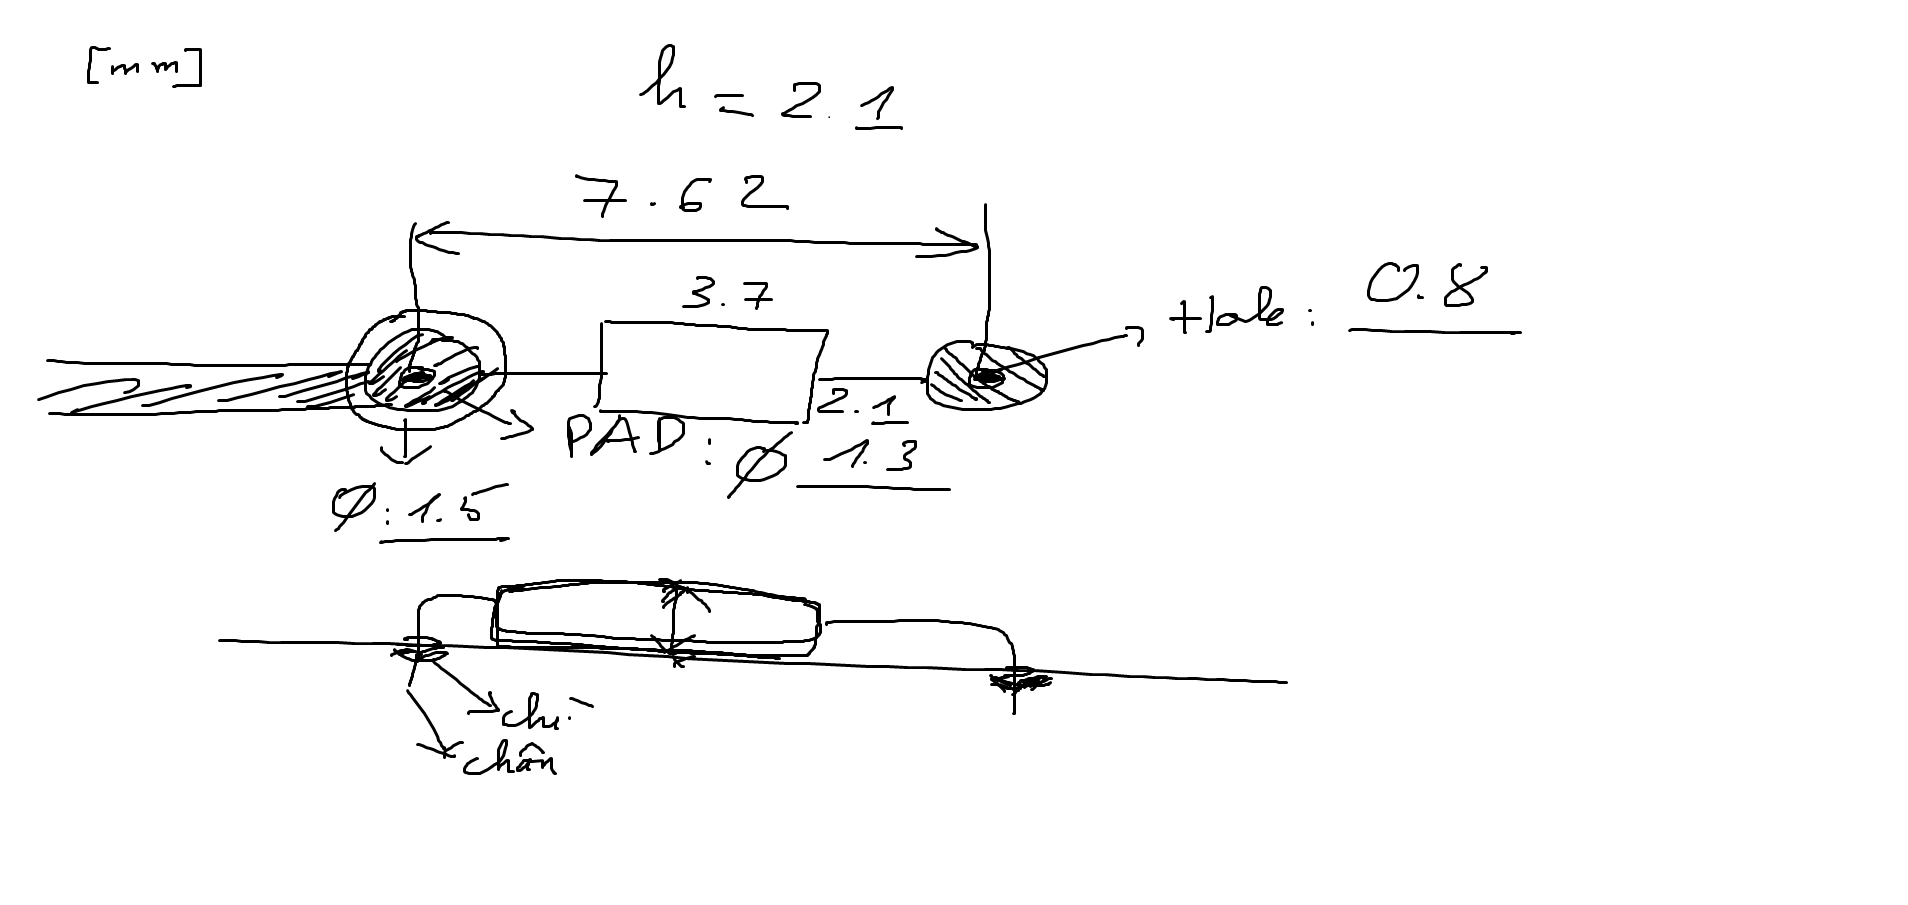 [mm]
h = 2.1
7.62
3.7
Hole: 0.8
2.1
PAD: Ø 1.3
Ø: 1.5
chì
chân